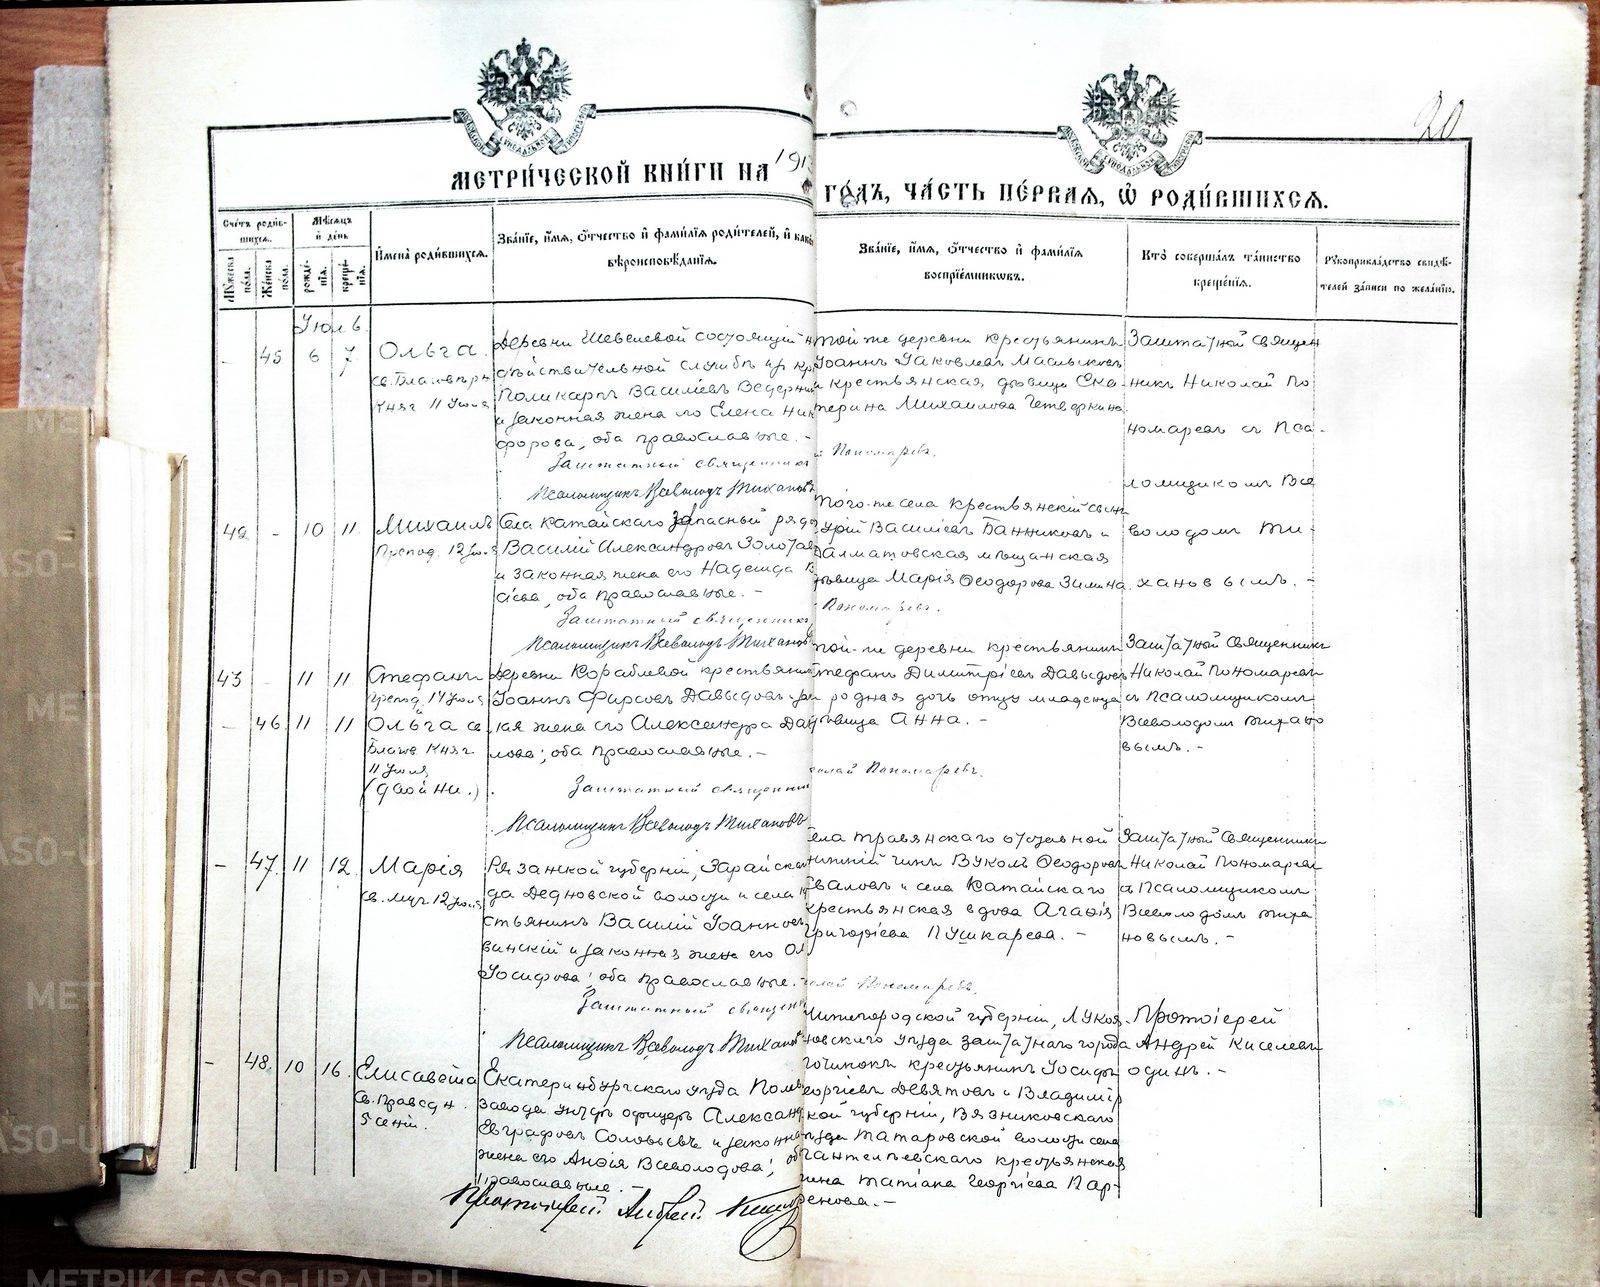 20
МЕТРИ́ЧЕСКОЙ КНИ́ГИ НА 191
ГО́ДЪ, ЧА́СТЬ ПЕ́РВАЯ, Ѽ РОДИ́ВШИХСЯ.
Сче́тъ роди́в-
шихся.
Му́жеска по́ла.
Же́нска по́ла.
Мѣ́сяцъ
и҆ де́нь
рожде́нїя.
креще́нїя.
И҆мена̀ роди́вшихся.
Зва́нїе, и҆́мя, ѻ҆́тчество и҆ фами́лїя роди́телей, и҆ како
вѣроисповѣ́данїя.
Зва́нїе, и҆́мя, ѻ҆́тчество и҆ фами́лїя
воспрїе́мниковъ.
Кто̀ соверша́лъ та́инство
креще́нїя.
Рукоприкла́дство свидѣ́-
телей за́писи по жела́нїю.
Іюль
- 45 6 7 Ольга
св. Благовѣрн
Княг 11 Іюля
Деревни Шевелевой состоящій н
дѣйствительной службѣ кр
Поликарпъ Василіевъ Ведерни
и законная жена его Елена Ник
форова, оба православные. -
Заштатный священникъ
Псаломщикъ Всеволодъ Тихановъ
той же деревни крестьянинъ
Іоаннъ Іаковлевъ Маслыковъ
и крестьянская дѣвица Ека-
терина Михаилова Четверкина.
Пономаревъ.
Заштатной Священ
никъ Николай По
номаревъ съ Пса-
ломщикомъ Все
володомъ Ти-
хановымъ. -
42 - 10 11 Михаилъ
Препод. 12 Іюля
Села Катайскаго запасный рядо
Василій Александровъ Золота
и законная жена его Надежда В
сіева, оба православные. -
Заштатный священникъ
Псаломщикъ Всеволодъ Тихановъ
Того-же села крестьянскій сынъ
Юрій Василіевъ Банниковъ и
Далматовская мѣщанская
дѣвица Марія Ѳеодорова Зимина.
Пономаревъ.
43 - 11 11 Стефанъ
Препод. 14 Іюля
- 46 11 11 Ольга св
Благов Княг.
11 Іюля
(двойни.)
Деревни Кораблевой крестьянин
Іоаннъ Фирсовъ Давыдовъ
ная жена его Александра Дан
лова; оба православные. -
Заштатный священни
Псаломщикъ Всеволодъ Тихановъ
той-же деревни крестьянинъ
Стефанъ Димитріевъ Давыдовъ
и родная дочь отцу младенца
дѣвица Анна. -
колай Пономаревъ.
Заштатной Священникъ
Николай Пономаревъ
съ Псаломщикомъ
Всеволодомъ Тихано
вымъ. -
- 47. 11 12. Марія
св. муч 12 Іюля
Рязанской губерніи, Зарайска
да Дедновской волости и села
стьянинъ Василій Іоанновъ
винскій и законная жена его Ол
Іосифова; оба православные. -
Заштатный священн
Псаломщикъ Всеволодъ Тиханов
села Травянскаго отдѣльной
нижній чинъ Вуколъ Ѳеодоровъ
и села Катайскаго
крестьянская вдова Агафія
Григоріева Пушкарева. -
колай Пономаревъ.
Заштатной Священникъ
Николай Пономарев
съ Псаломщикомъ
Всеволодомъ Тиха
новымъ. -
- 48. 10 16. Елисавета
Св. Праведн.
5 сент.
Екатеринбургскаго уѣзда
завода унтеръ офицеръ Алексан
Евграфовъ Соловьевъ и законна
жена его Анфія Всеволодова; об
православные. -
Протоіерей Андрей Кисел
Нижегородской губерніи, Лукоя-
новскаго уѣзда заштатнаго города
Починокъ крестьянинъ Іосифъ
Георгіевъ Девятовъ и Владимір
ской губерніи, Вязниковскаго
уѣзда Татаровской волости села
крестьянская
жена Татіана Георгіева Пар-
фенова. -
Протоіерей
Андрей Киселевъ
одинъ. -
METRIKI.GASO-URAL.RU